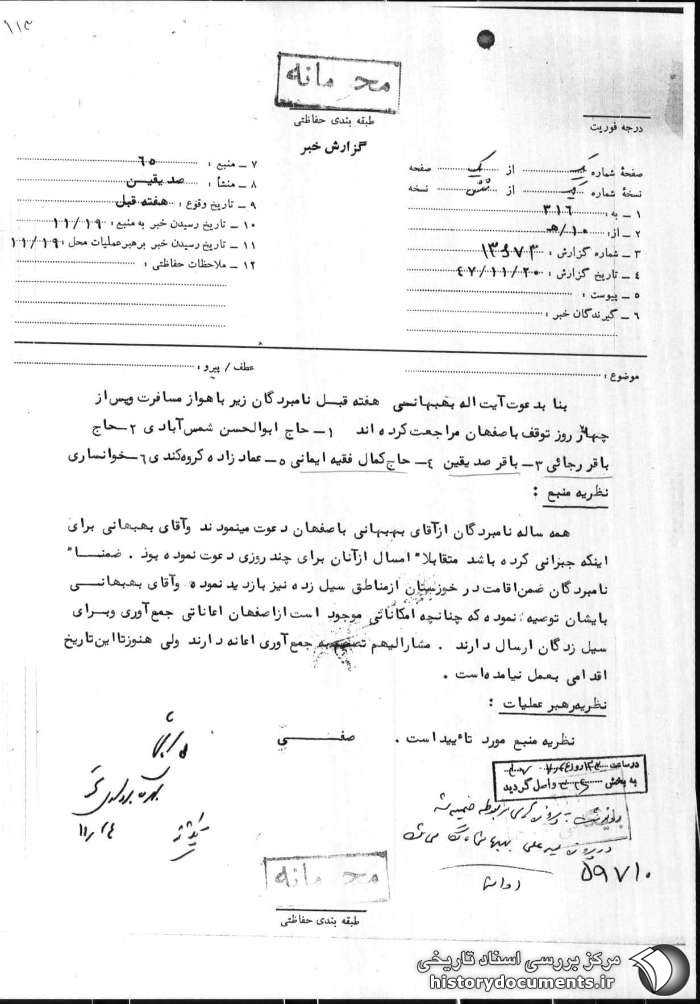 ۱۱۴
محرمانه
طبقه بندی حفاظتی
گزارش خبر
درجه فوریت
صفحهٔ شماره یک از یک صفحه
نسخهٔ شماره یک از شش نسخه
۱ ـ به : ۳۱۶
۲ ـ از: ۱۰/هـ
۳ ـ شماره گزارش : ۱۳۹۷۳
۴ ـ تاریخ گزارش : ۴۷/۱۱/۲۰
۵ ـ پیوست :
۶ ـ گیرندگان خبر :
۷ ـ منبع : ۶۵
۸ ـ منشأ : صدیقین
۹ ـ تاریخ وقوع : هفته قبل
۱۰ ـ تاریخ رسیدن خبر به منبع : ۱۱/۱۹
۱۱ ـ تاریخ رسیدن خبر برهبر عملیات محل : ۱۱/۱۹
۱۲ ـ ملاحظات حفاظتی :
موضوع :
عطف / پیرو :
بنا بدعوت آیت اله بهبهانی هفته قبل نامبردگان زیر باهواز مسافرت وپس از
چهار روز توقف باصفهان مراجعت کرده اند ۱ـ حاج ابوالحسن شمس آبادی ۲ـ حاج
باقر رجائی ۳ـ باقر صدیقین ۴ـ حاج کمال فقیه ایمانی ۵ـ عماد زاده گروه کندی ۶ـ خوانساری
نظریه منبع :
همه ساله نامبردگان ازآقای بهبهانی باصفهان دعوت مینمودند وآقای بهبهانی برای
اینکه جبرانی کرده باشد متقابلاً امسال ازآنان برای چند روزی دعوت نموده بود . ضمناً
نامبردگان ضمن اقامت در خوزستان ازمناطق سیل زده نیز بازدید نموده وآقای بهبهانی
بایشان توصیه نموده که چنانچه امکاناتی موجود است ازاصفهان اعاناتی جمع آوری وبرای
سیل زدگان ارسال دارند . مشارالیهم تصمیم به جمع آوری اعانه دارند ولی هنوزتااین تاریخ
اقدامی بعمل نیامده است .
نظریه رهبر عملیات :
نظریه منبع مورد تأیید است . صفی
در ساعت
به بخش واصل گردید
۱۱/۲۴
۵۹۷۱۰
محرمانه
طبقه بندی حفاظتی
مرکز بررسی اسناد تاریخی
historydocuments.ir